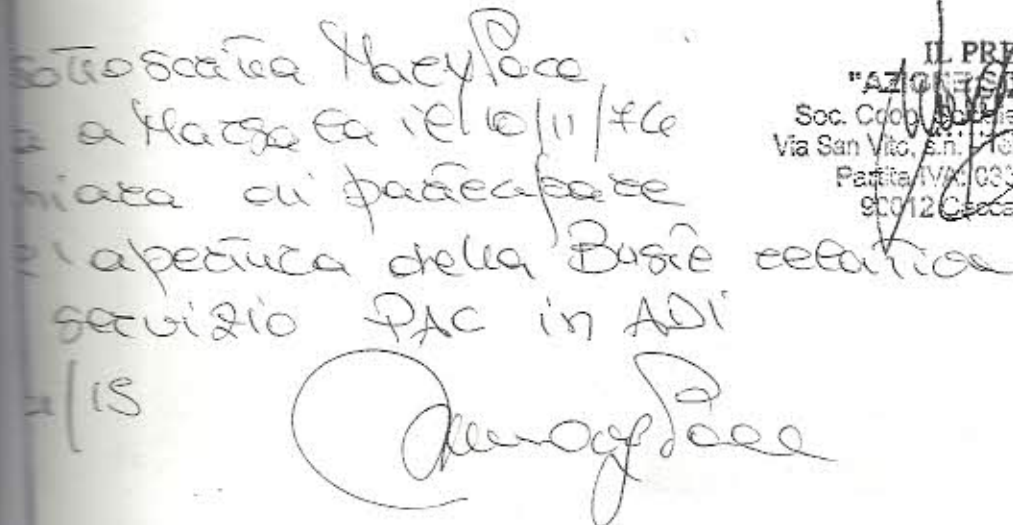 sottoscritta Mary Pace
a Marsala il 10/11/76
hiara di partecipare
l'apertura della Buste relation
servizio PAC in ADI
/15
Mary Pace
IL PRE
"AZIONE SO
Soc. Coop.
Via San Vito, s.n. - 
Partita IVA: 033
90012 Cacca